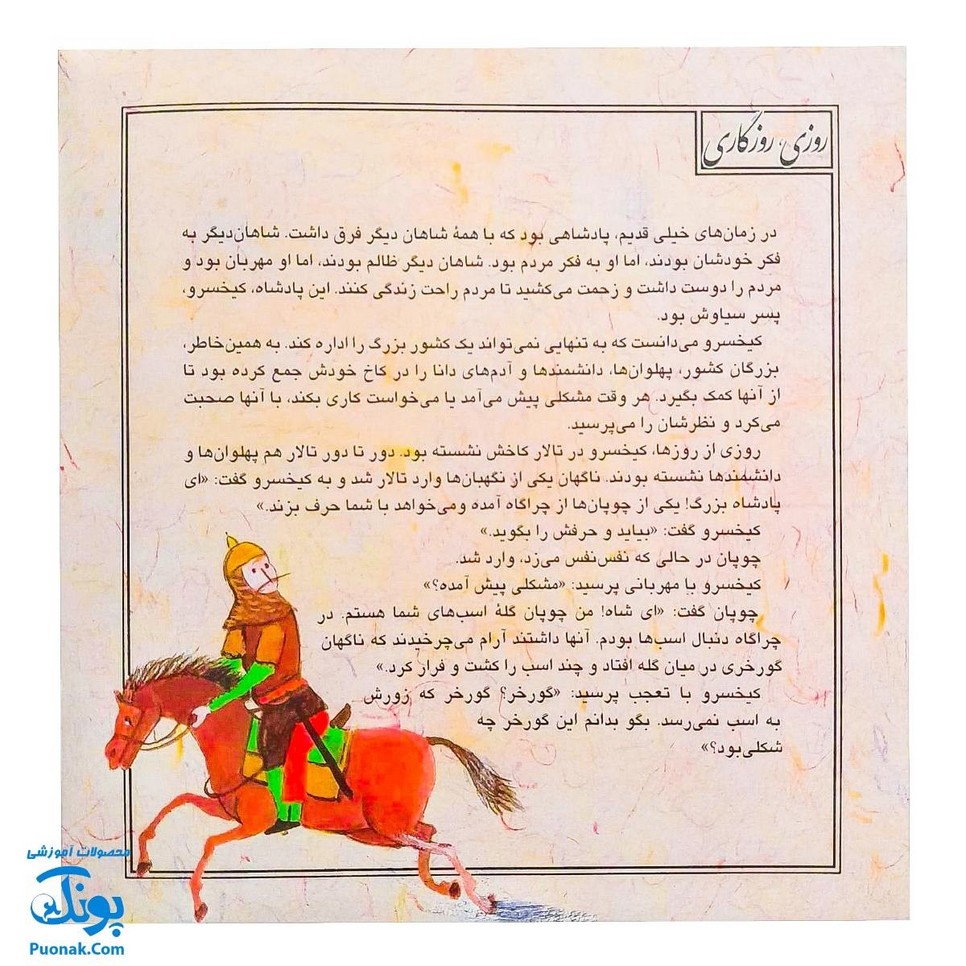 روزی، روزگاری
در زمان‌های خیلی قدیم، پادشاهی بود که با همهٔ شاهان دیگر فرق داشت. شاهان‌دیگر به
فکر خودشان بودند، اما او به فکر مردم بود. شاهان دیگر ظالم بودند، اما او مهربان بود و
مردم را دوست داشت و زحمت می‌کشید تا مردم راحت زندگی کنند. این پادشاه، کیخسرو،
پسر سیاوش بود.
کیخسرو می‌دانست که به تنهایی نمی‌تواند یک کشور بزرگ را اداره کند. به همین‌خاطر،
بزرگان کشور، پهلوان‌ها، دانشمندها و آدم‌های دانا را در کاخ خودش جمع کرده بود تا
از آنها کمک بگیرد. هر وقت مشکلی پیش می‌آمد یا می‌خواست کاری بکند، با آنها صحبت
می‌کرد و نظرشان را می‌پرسید.
روزی از روزها، کیخسرو در تالار کاخش نشسته بود. دور تا دور تالار هم پهلوان‌ها و
دانشمندها نشسته بودند. ناگهان یکی از نگهبان‌ها وارد تالار شد و به کیخسرو گفت: «ای
پادشاه بزرگ! یکی از چوپان‌ها از چراگاه آمده ومی‌خواهد با شما حرف بزند.»
کیخسرو گفت: «بیاید و حرفش را بگوید.»
چوپان در حالی که نفس‌نفس می‌زد، وارد شد.
کیخسرو با مهربانی پرسید: «مشکلی پیش آمده؟»
چوپان گفت: «ای شاه! من چوپان گلهٔ اسب‌های شما هستم. در
چراگاه دنبال اسب‌ها بودم. آنها داشتند آرام می‌چرخیدند که ناگهان
گورخری در میان گله افتاد و چند اسب را کشت و فرار کرد.»
کیخسرو با تعجب پرسید: «گورخر؟ گورخر که زورش
به اسب نمی‌رسد. بگو بدانم این گورخر چه
شکلی‌بود؟»
محصولات آموزشی
پونک
Puonak.Com